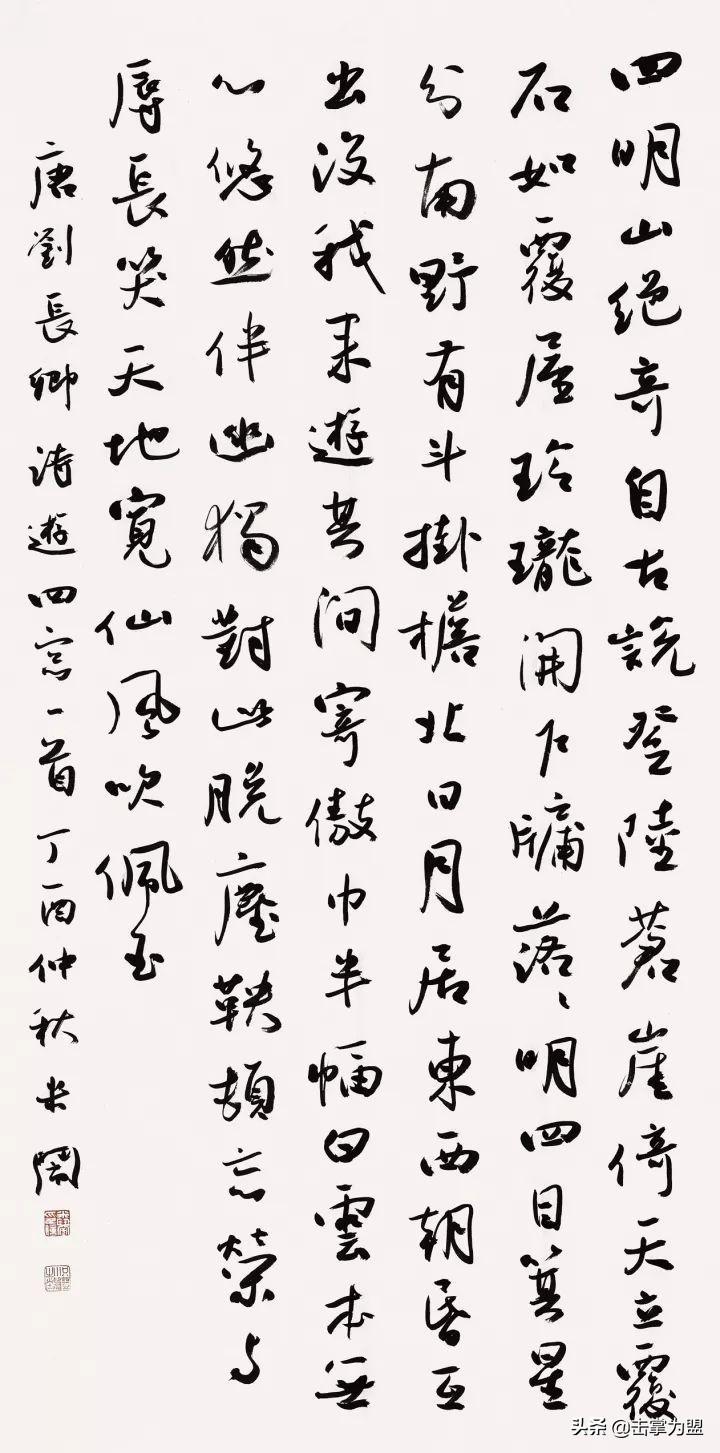 四明山絕奇自古說登陸蒼崖倚天立覆
石如覆屋玲瓏開户牖落〻明四目箕星
分南野有斗掛檐北日月居東西朝昏互
出没我来遊其間寄傲巾半幅白雲本無
心悠然伴幽獨對此脱塵鞅頓忘榮与
辱長笑天地寬仙風吹佩玉
唐劉長卿詩遊四窓一首丁酉仲秋
头条 @击掌为盟